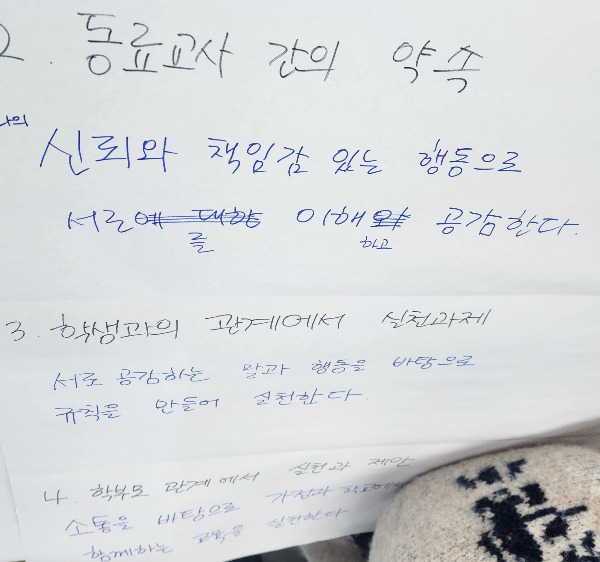 2. 동료교사 간의 약속
신뢰와 책임감 있는 행동으로
서로를 이해하고 공감한다.
3. 학생과의 관계에서 실천과제
서로 공감하는 말과 행동을 바탕으로
규칙을 만들어 실천한다.
4. 학부모 관계에서 실천과 제안
소통을 바탕으로 가정과 학교에서
함께하는 교육을 실현한다